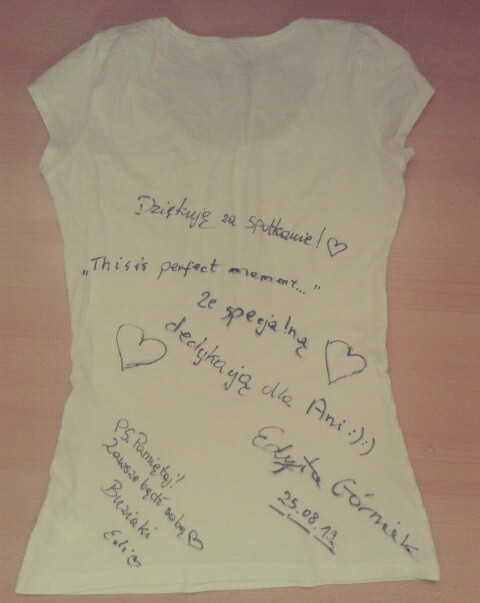 Dziękuję za spotkanie! ♡
„This is perfect moment..."
ze specjalną
dedykacją dla Ani :):)
Edyta Górniak
25.08.12
PS. Pamiętaj!!
Zawsze bądź sobą ♡
Buziaki
Edi ♡